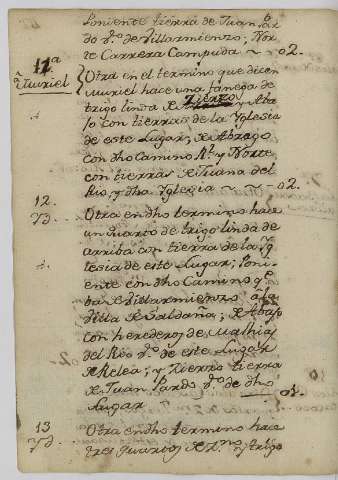 Poniente tierra de Juan Par
do Vº de Villarmienzo; Nor
te Carrera Campuda ~ ~ 02.
11ª
â Muriel
Otra en el termino que dicen
Muriel hace una fanega de
trigo linda Zierzo y Aba
jo con tierras de la Yglesia
de este Lugar; Abrego
con dho Camino Rl. y Norte
con tierras Juana del
Rio, y dha Yglesia ~ ~ ~ 02.
12.
Yd.
Otra en dho termino hace
un quarto de trigo linda de
arriba con tierra de la Yg
lesia de este Lugar; Poni
ente con dho Camino qe
ba Villarmienzo â la
Villa Saldaña; Abajo
con herederos de Mathias
del Rio Vº de este Lugar
Relea; y Zierzo tierra
Juan Pardo Vº de dho
Lugar
13
Yd.
Otra en dho termino hace
tres quartos trigo